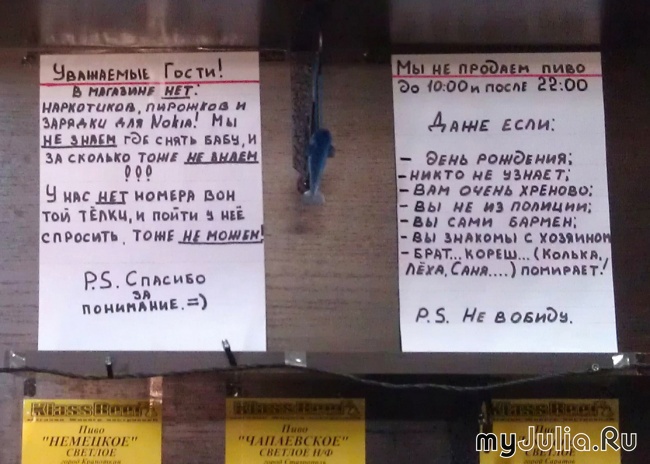 Уважаемые Гости!
В магазине нет:
наркотиков, пирожков и
зарядки для Nokia! Мы
не знаем где снять бабу, и
за сколько тоже не знаем
!!!
У нас нет номера вон
той тёлки, и пойти у неё
спросить, тоже не можем!
P.S. Спасибо
за
понимание. =)
Мы не продаем пиво
до 10:00 и после 22:00
Даже если:
- день рождения;
- никто не узнает;
- вам очень хреново;
- вы не из полиции;
- вы сами бармен;
- вы знакомы с хозяином
- брат... кореш... (Колька,
Лёха, Саня....) помирает!
P.S. Не в обиду.
Klass Beer
Пиво
"НЕМЕЦКОЕ"
СВЕТЛОЕ
Klass Beer
Пиво
"ЧАПАЕВСКОЕ"
СВЕТЛОЕ Н/Ф
Klass Beer
Пиво
СВЕТЛОЕ
myJulia.Ru